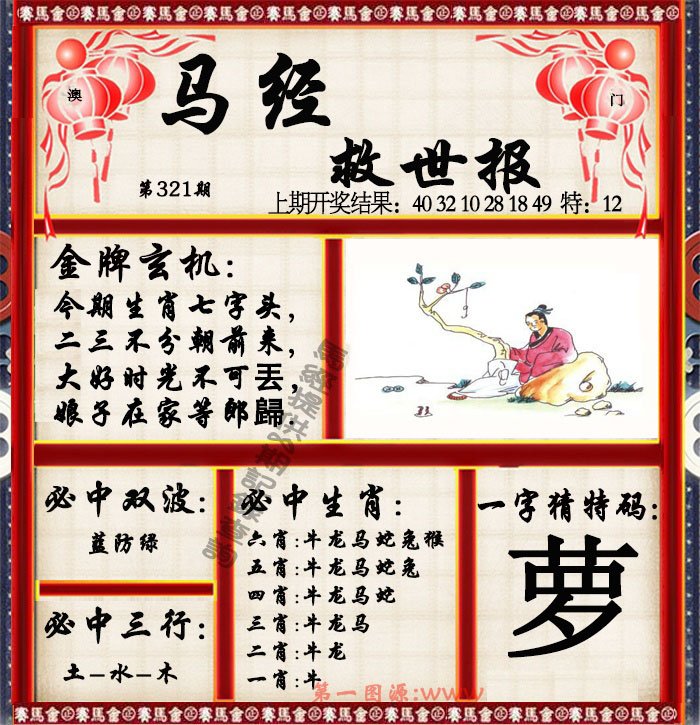 賽馬會正賽馬會正賽馬會正賽馬會正賽馬會正賽馬會正賽馬會正
澳
门
马经
救世报
第321期
上期开奖结果：40 32 10 28 18 49 特：12
金牌玄机：
今期生肖七字头，
二三不分朝前来，
大好时光不可丢，
娘子在家等郎歸．
必中双波：
蓝防绿
必中三行：
土–水–木
必中生肖：
六肖:牛龙马蛇兔猴
五肖:牛龙马蛇兔
四肖:牛龙马蛇
三肖:牛龙马
二肖:牛龙
一肖:牛
一字猜特码:
萝
第一图源:www